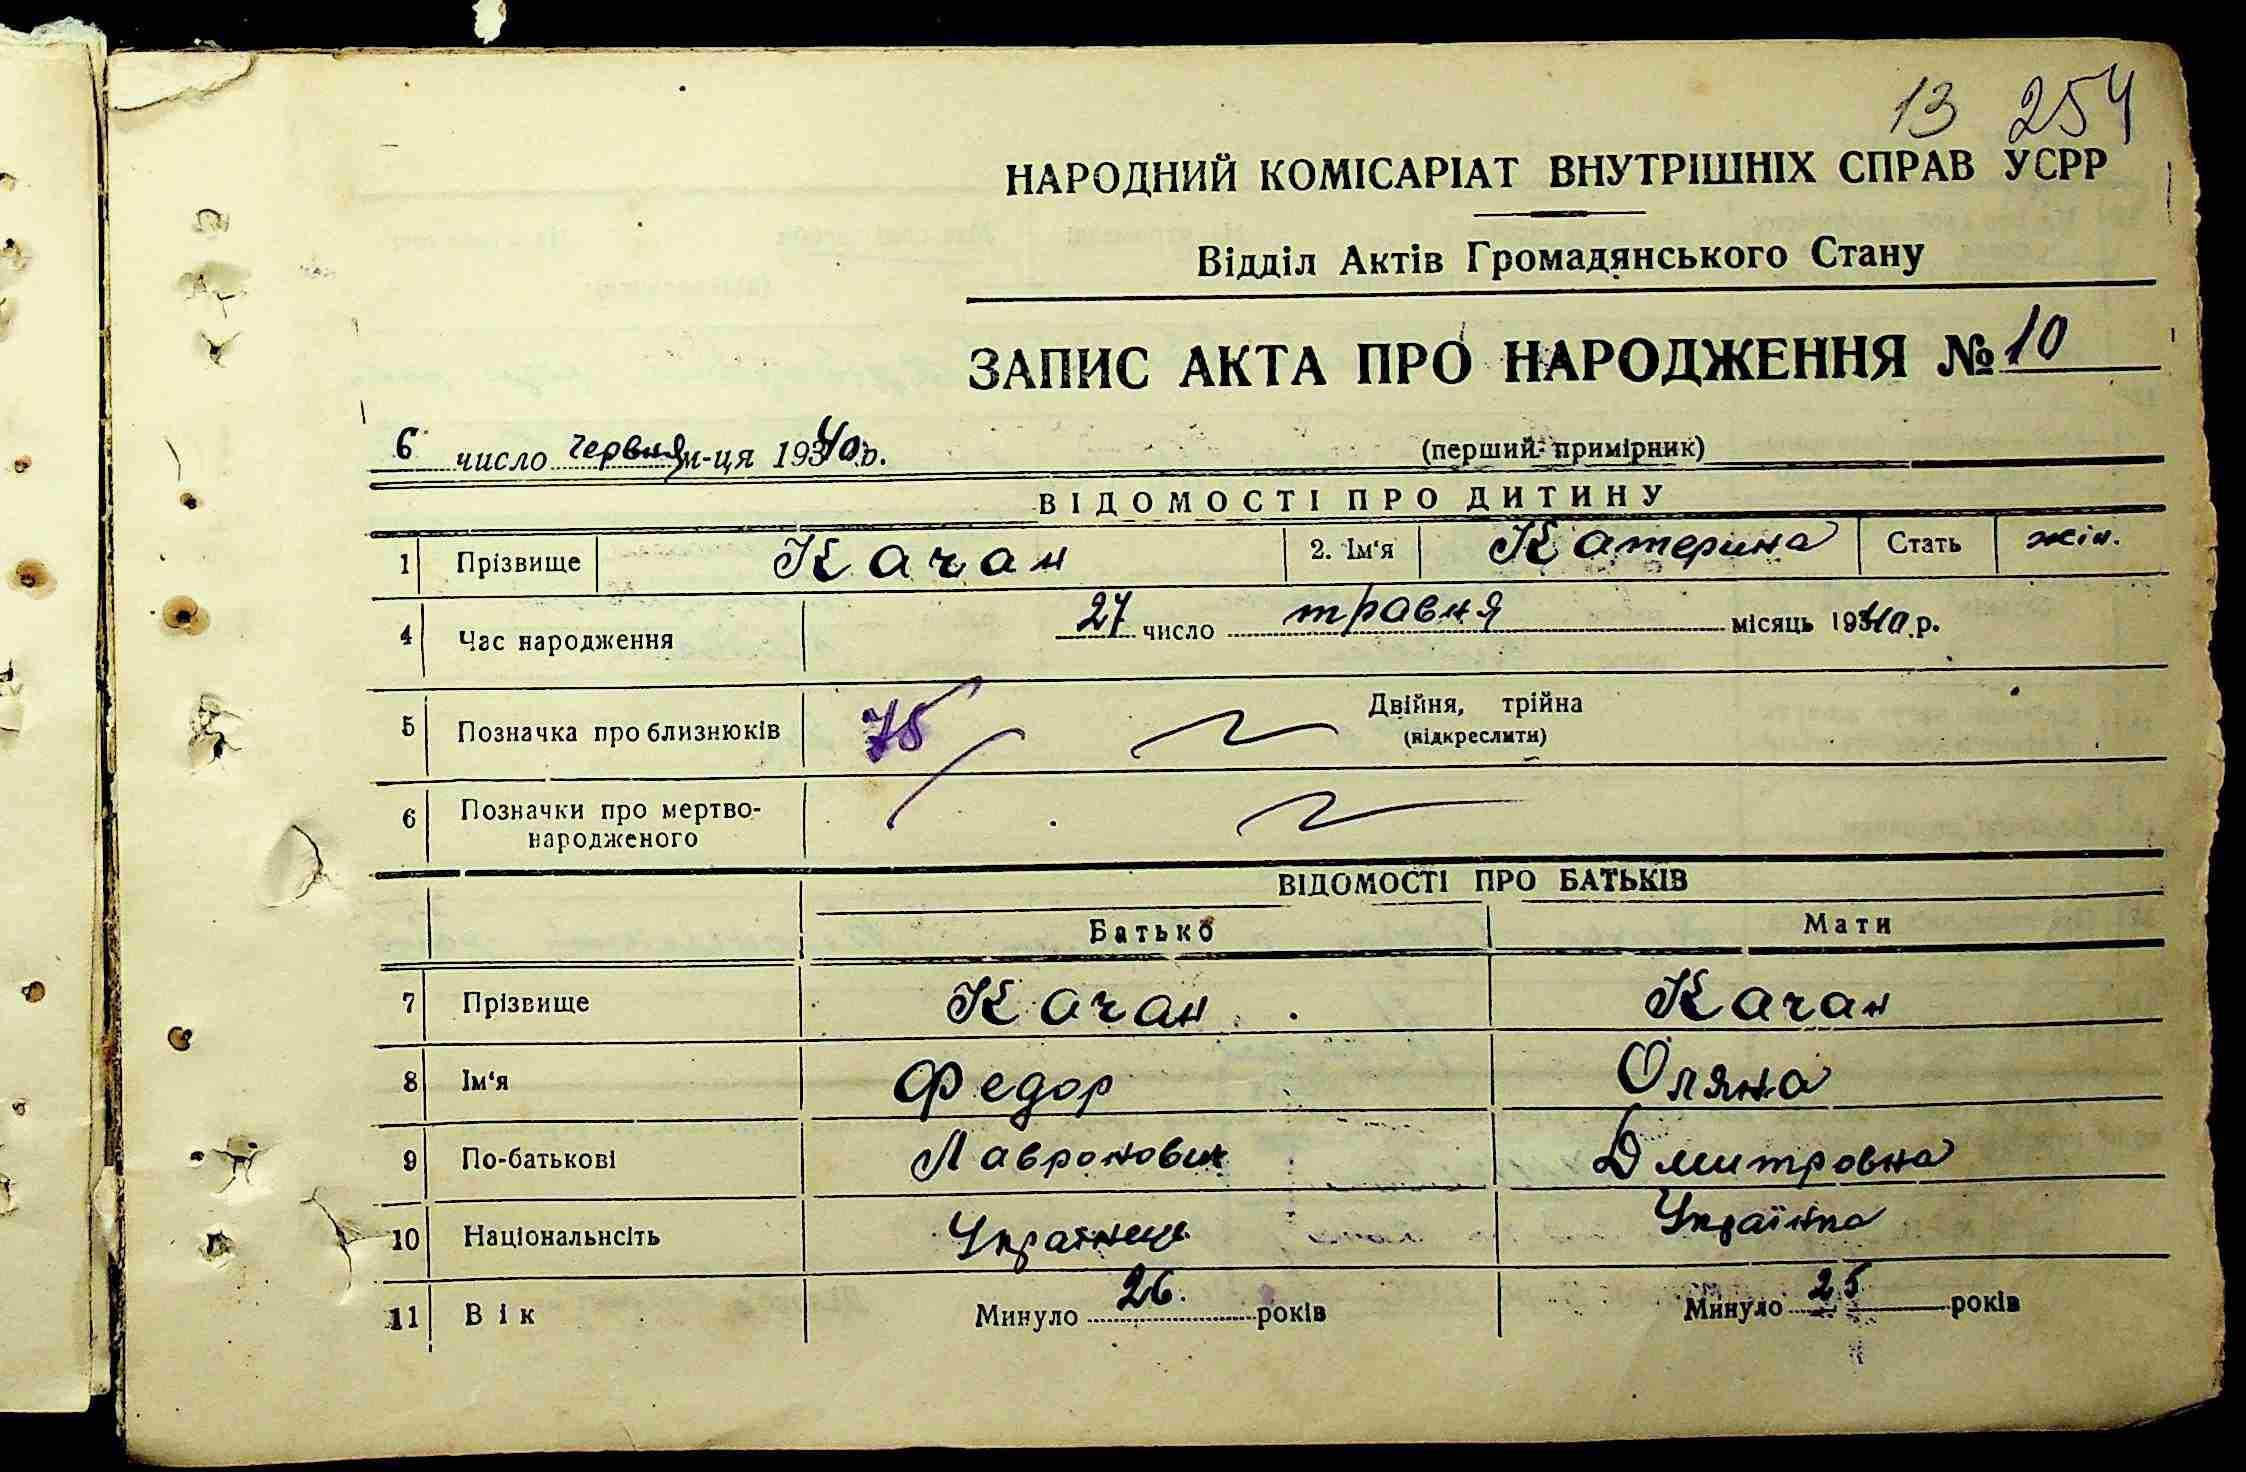 13 254
НАРОДНИЙ КОМІСАРІАТ ВНУТРІШНІХ СПРАВ УСРР
Відділ Актів Громадянського Стану
ЗАПИС АКТА ПРО НАРОДЖЕННЯ № 10
6 число червня м-ця 1940 р.
(перший примірник)
ВІДОМОСТІ ПРО ДИТИНУ
1 Прізвище Качан 2. Ім'я Катерина Стать жін.
4 Час народження 27 число травня місяць 1940 р.
5 Позначка про близнюків 75 Двійня, трійна
(підкреслити)
6 Позначки про мертво-
народженого
ВІДОМОСТІ ПРО БАТЬКІВ
Батько Мати
7 Прізвище Качан Качан
8 Ім'я Федор Оляна
9 По-батькові Лавронович Дмитровна
10 Національнсіть Українець Українка
11 Вік Минуло 26 років Минуло 25 років